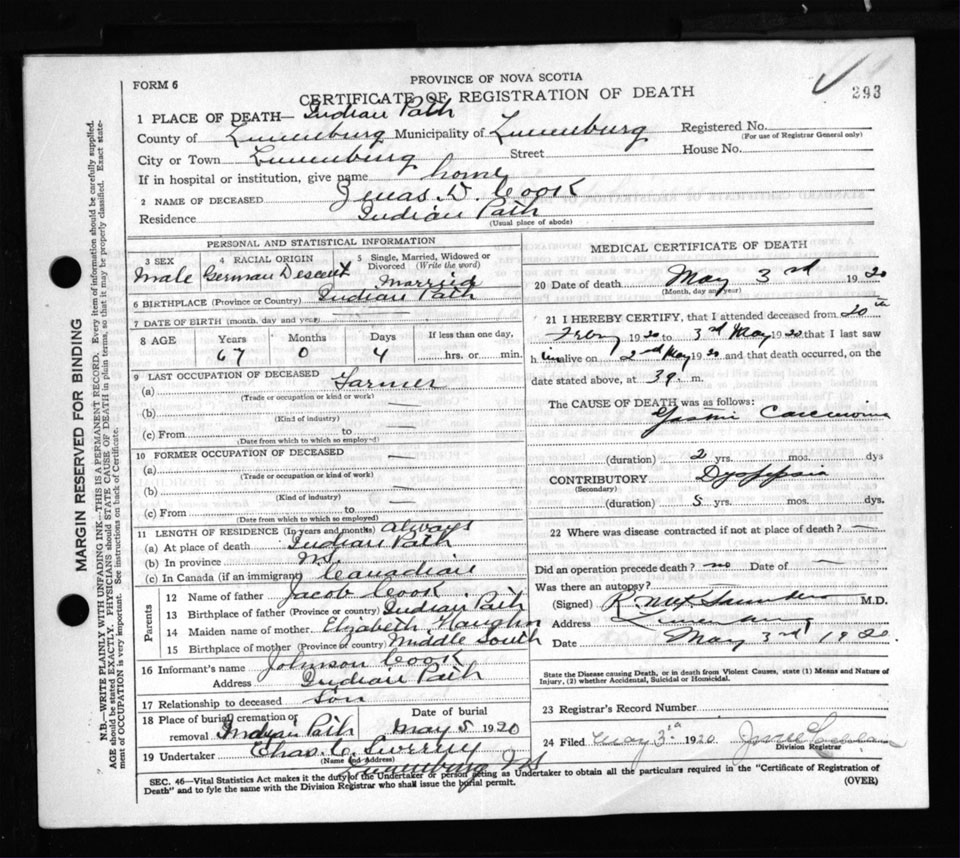 PROVINCE OF NOVA SCOTIA
FORM 6
CERTIFICATE OF REGISTRATION OF DEATH
293
1 PLACE OF DEATH— Indian Path
County of Lunenburg Municipality of Lunenburg Registered No.
(For use of Registrar General only)
City or Town Lunenburg Street House No.
If in hospital or institution, give name home
2 NAME OF DECEASED Zenas. D. Cook
Residence Indian Path
(Usual place of abode)
PERSONAL AND STATISTICAL INFORMATION
3 SEX Male
4 RACIAL ORIGIN German Descent
5 Single, Married, Widowed or Divorced (Write the word) Married
6 BIRTHPLACE (Province or Country) Indian Path
7 DATE OF BIRTH (month, day and year)
8 AGE Years Months Days If less than one day,
67 0 4 hrs. or min.
9 LAST OCCUPATION OF DECEASED
(a) Farmer
(Trade or occupation or kind or work)
(b)
(Kind of industry)
(c) From to
(Date from which to which so employed)
10 FORMER OCCUPATION OF DECEASED
(a) —
(Trade or occupation or kind of work)
(b) —
(Kind of industry)
(c) From to —
(Date from which to which so employed)
11 LENGTH OF RESIDENCE (In years and months) always
(a) At place of death Indian Path
(b) In province N.S.
(c) In Canada (if an immigrant) Canadian
Parents
12 Name of father Jacob Cook
13 Birthplace of father (Province or country) Indian Path
14 Maiden name of mother Elizabeth Naughn
15 Birthplace of mother (Province or country) Middle South
16 Informant's name Johnson Cook
Address Indian Path
17 Relationship to deceased Son
18 Place of burial, cremation or removal Indian Path
Date of burial May 5 1920
19 Undertaker Chas. C.
(Name and Address)
Lunenburg NS
MEDICAL CERTIFICATE OF DEATH
20 Date of death May 3rd 1920
(Month, day and year)
21 I HEREBY CERTIFY, that I attended deceased from 20th
Febry 1920 to 3rd May 1920 that I last saw
him alive on 2nd May 1920 and that death occurred, on the
date stated above, at 3 m.
The CAUSE OF DEATH was as follows:
Carcinoma
(duration) 2 yrs. mos. dys
CONTRIBUTORY Dyspepsia
(Secondary)
(duration) 5 yrs. mos. dys.
22 Where was disease contracted if not at place of death? —
Did an operation precede death? no Date of —
Was there an autopsy?
(Signed) Saunders M.D.
Address Lunenburg
Date May 3rd 1920.
State the Disease causing Death, or in death from Violent Causes, state (1) Means and Nature of
Injury, (2) whether Accidental, Suicidal or Homicidal.
23 Registrar's Record Number
24 Filed May 3rd 1920
Division Registrar
SEC. 46—Vital Statistics Act makes it the duty of the Undertaker or person acting as Undertaker to obtain all the particulars required in the "Certificate of Registration of
Death" and to fyle the same with the Division Registrar who shall issue the burial permit.
(OVER)
MARGIN RESERVED FOR BINDING
N.B.—WRITE PLAINLY WITH UNFADING INK—THIS IS A PERMANENT RECORD. Every item of information should be carefully supplied.
AGE should be stated EXACTLY. PHYSICIANS should STATE CAUSE OF DEATH in plain terms, so that it may be properly classified. Exact state-
ment of OCCUPATION is very important. See instructions on back of Certificate.